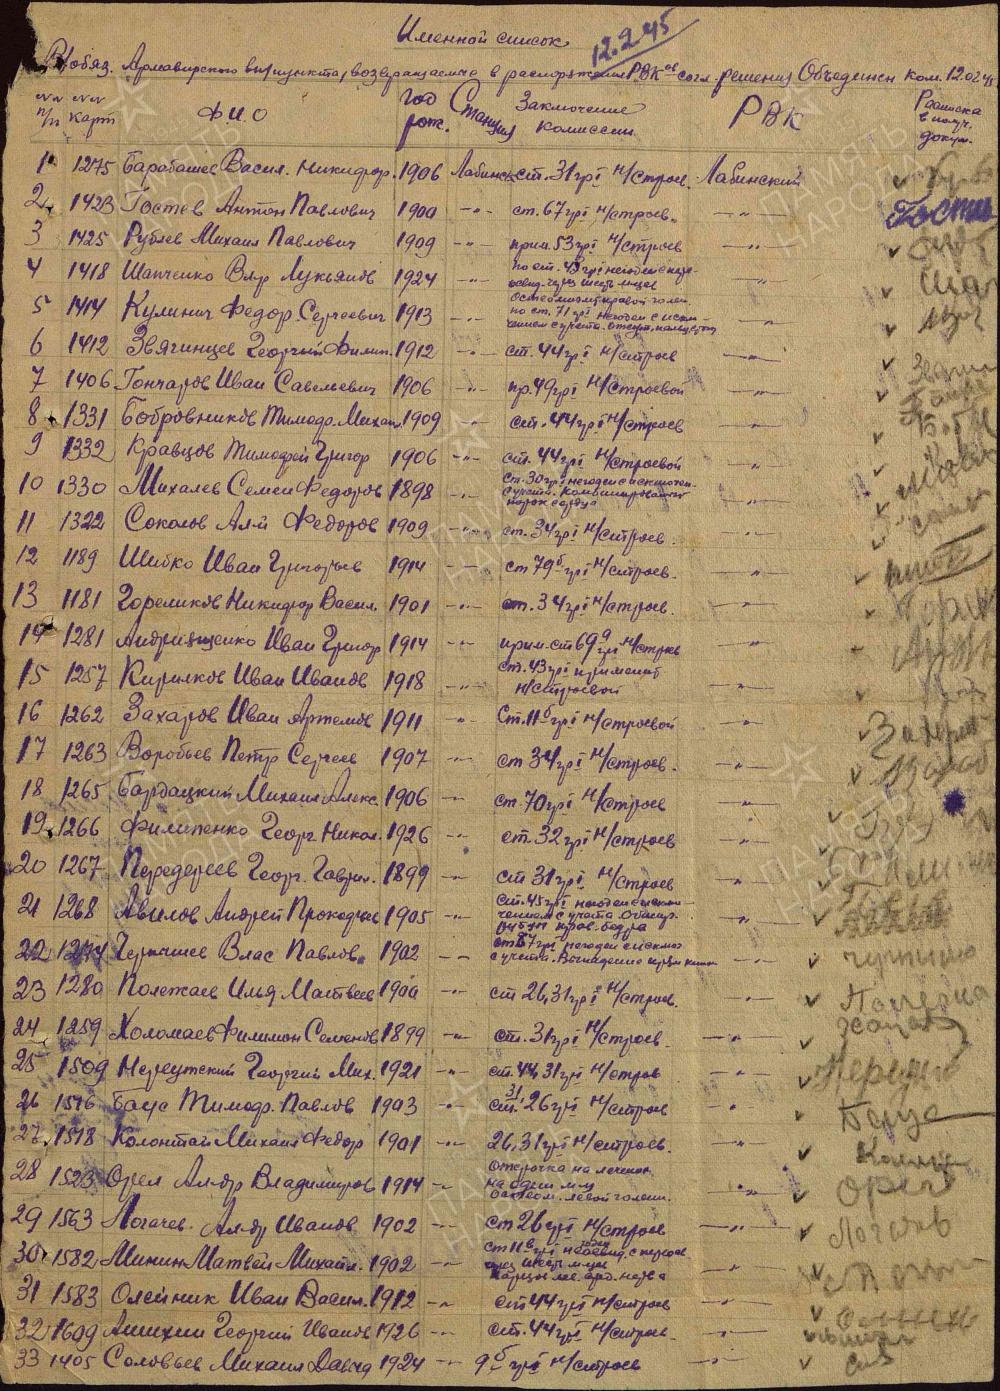 Именной список
12.2.45
В/обяз. Армавирского в/пункта, возвращаемые в распоряжение РВК ов согл. решения Объединен ком. 12.02.45
№№ п/п №№ карт Ф.И.О год рож. Станция Заключение комиссии РВК Расписка в получ. докум.
1 1275 Барабашев Васил. Никифор. 1906 Лабинск ст. 31 гр I н/строев. Лабинский
2 1423 Гостев Антон Павлович 1900 -"- ст. 67 гр I н/строев. -"- Гостев
3 1425 Рублев Михаил Павлович 1909 -"- прим. 53 гр I н/строев -"-
4 1418 Шапченко Влр Лукьянов 1924 -"- по ст. 43 гр I негоден с пере-
освид. через шесть м-цев
5 1414 Кулинич Федор Сергеевич 1913 -"- остеомиелит правой голен.
по ст. 71 гр I негоден с исклю-
чением с учета.
6 1412 Звягинцев Георгий Филип. 1912 -"- ст. 44 гр I н/строев -"-
7 1406 Гончаров Иван Савельевич 1906 -"- пр. 49 гр I н/строевой -"-
8 1331 Бобровников Тимоф. Михай. 1909 -"- ст. 44 гр I н/строев -"-
9 1332 Кравцов Тимофей Григор 1906 -"- ст. 44 гр I н/строевой -"-
10 1330 Михалев Семен Федоров 1898 -"- ст. 30 гр I негоден с исключен.
с учета. Комбинированный
порок сердца -"-
11 1322 Соколов Ал-й Федоров 1909 -"- ст. 34 гр I н/строев. -"-
12 1189 Шибко Иван Григорьев 1914 -"- ст 79 б гр I н/строев. -"-
13 1181 Гореликов Никифор Васил. 1901 -"- ст. 34 гр I н/строев. -"-
14 1281 Андрющенко Иван Григор 1914 -"- прим. ст 69 а гр I н/строев -"-
15 1257 Кирилков Иван Иванов 1918 -"- ст. 43 гр I применит
н/строевой -"-
16 1262 Захаров Иван Артемов 1911 -"- Ст. 11 б гр I н/строевой -"- Захаров
17 1263 Воробьев Петр Сергеев 1907 -"- ст 34 гр I н/строев. -"-
18 1265 Бардацкий Михаил Алекс. 1906 -"- ст. 70 гр I н/строев -"-
19 1266 Филипенко Георг. Никол. 1926 -"- ст. 32 гр I н/строев -"-
20 1267 Передереев Георг. Гаврил. 1899 -"- ст 31 гр I н/строев -"-
21 1268 Авилов Андрей Прокофьев 1905 -"- ст. 45 гр I негоден с исклю-
чением с учета. -"-
прав. бедра
22 1274 Чернышев Влас Павлов. 1902 -"- ст 87 гр I негоден с исключ
с учета. Выпадение прям кишки -"-
23 1280 Полежаев Илья Матвеев 1900 -"- ст 26, 31 гр I н/строев. -"-
24 1259 Холомаев Филимон Семенов 1899 -"- ст. 31 гр I н/строев. -"-
25 1509 Нередтский Георгий Мих. 1921 -"- ст. 44, 31 гр I н/строев -"-
26 1516 Баус Тимоф. Павлов 1903 -"- ст. 31, 26 гр I н/строев -"-
27 1518 Колонтай Михаил Федор 1901 -"- 26, 31 гр I н/строев. -"-
28 1523 Орел Ал-др Владимиров 1914 -"- отсрочка на лечение
на один м-ц
остеом. левой голени. -"- Орел
29 1563 Логачев Ал-др Иванов 1902 -"- ст 26 гр I н/строев -"-
30 1582 Минин Матвей Михайл. 1902 -"- ст 11 в гр I негоден с переосв.
через шесть м-цев -"-
31 1583 Олейник Иван Васил. 1912 -"- ст 44 гр I н/строев -"-
32 1609 Анихин Георгий Иванов 1926 -"- ст. 44 гр I н/строев. -"-
33 1405 Соловьев Михаил Давид 1924 -"- 9 б гр I н/строев -"-